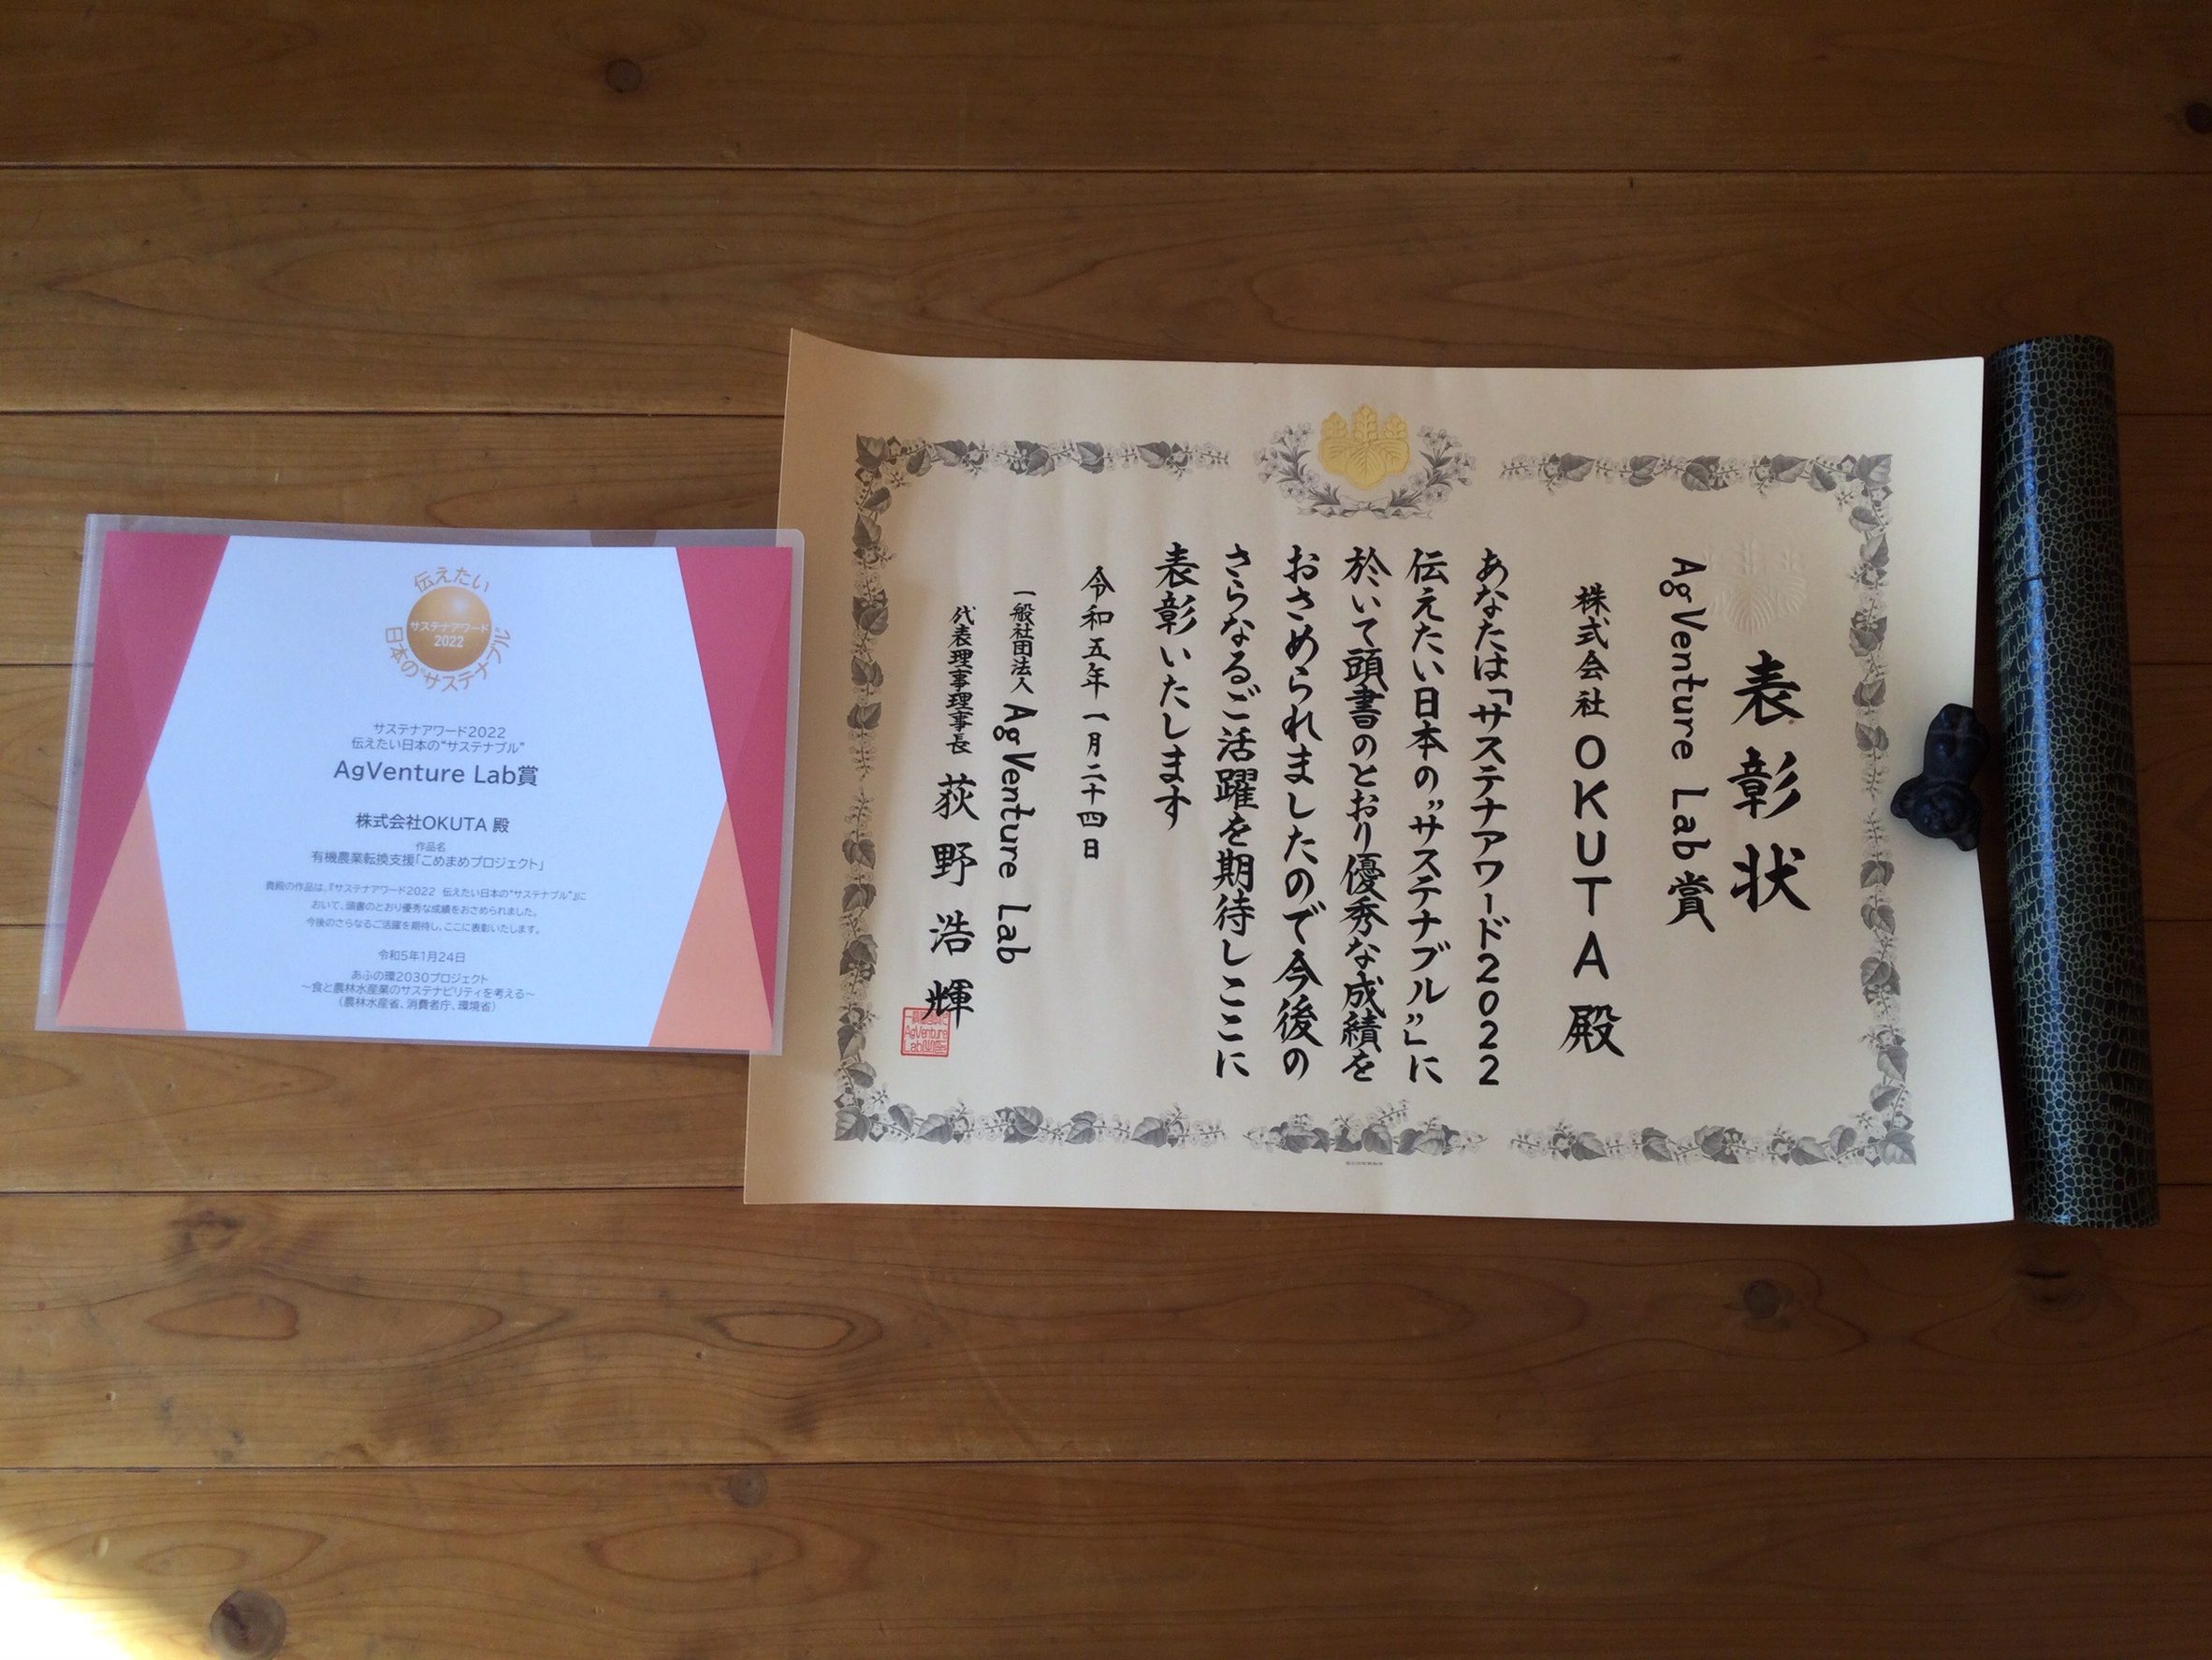 伝えたい
サステナアワード
2022
日本の"サステナブル"
サステナアワード2022
伝えたい日本の"サステナブル"
AgVenture Lab賞
株式会社OKUTA 殿
作品名
有機農業転換支援「こめまめプロジェクト」
貴殿の作品は、『サステナアワード2022 伝えたい日本の"サステナブル"』に
おいて、頭書のとおり優秀な成績をおさめられました。
今後のさらなるご活躍を期待し、ここに表彰いたします。
令和5年1月24日
あふの環2030プロジェクト
～食と農林水産業のサステナビリティを考える～
（農林水産省、消費者庁、環境省）
表彰状
AgVenture Lab賞
株式会社OKUTA殿
あなたは「サステナアワード2022
伝えたい日本の"サステナブル"」に
於いて頭書のとおり優秀な成績を
おさめられましたので今後の
さらなるご活躍を期待しここに
表彰いたします
令和五年一月二十四日
一般社団法人 AgVenture Lab
代表理事理事長 荻野浩輝
AgVenture